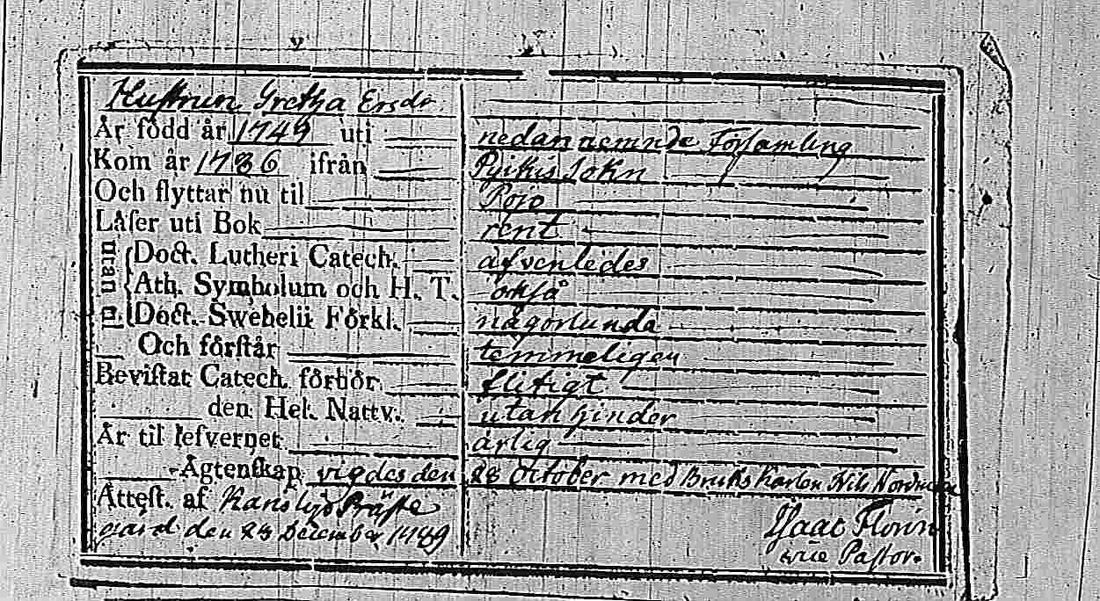 Huſtrun Gretha Ersdr
År född år 1749 uti nedannemnde Förſamling
Kom år 1786 ifrån Pijkis Sokn
Och flyttar nu til Pojo
Läſer uti Bok rent
utan Doct. Lutheri Catech. äfvenledes
Ath. Symbolum och H. T. ockſå
til Doct. Swebelii Förkl. någorlunda
Och förſtår temmeligen
Beviſtat Catech. förhör flitigt
den Hel. Nattv. utan hinder
Är til lefvernet ärlig
Ägtenſkap vigdes den 28 October med Bruks Karlen Nils Nordman
Åtteſt. af Karislojo Präſte
gård den 23 December 1789
Iſaac Florin
vice Paſtor.